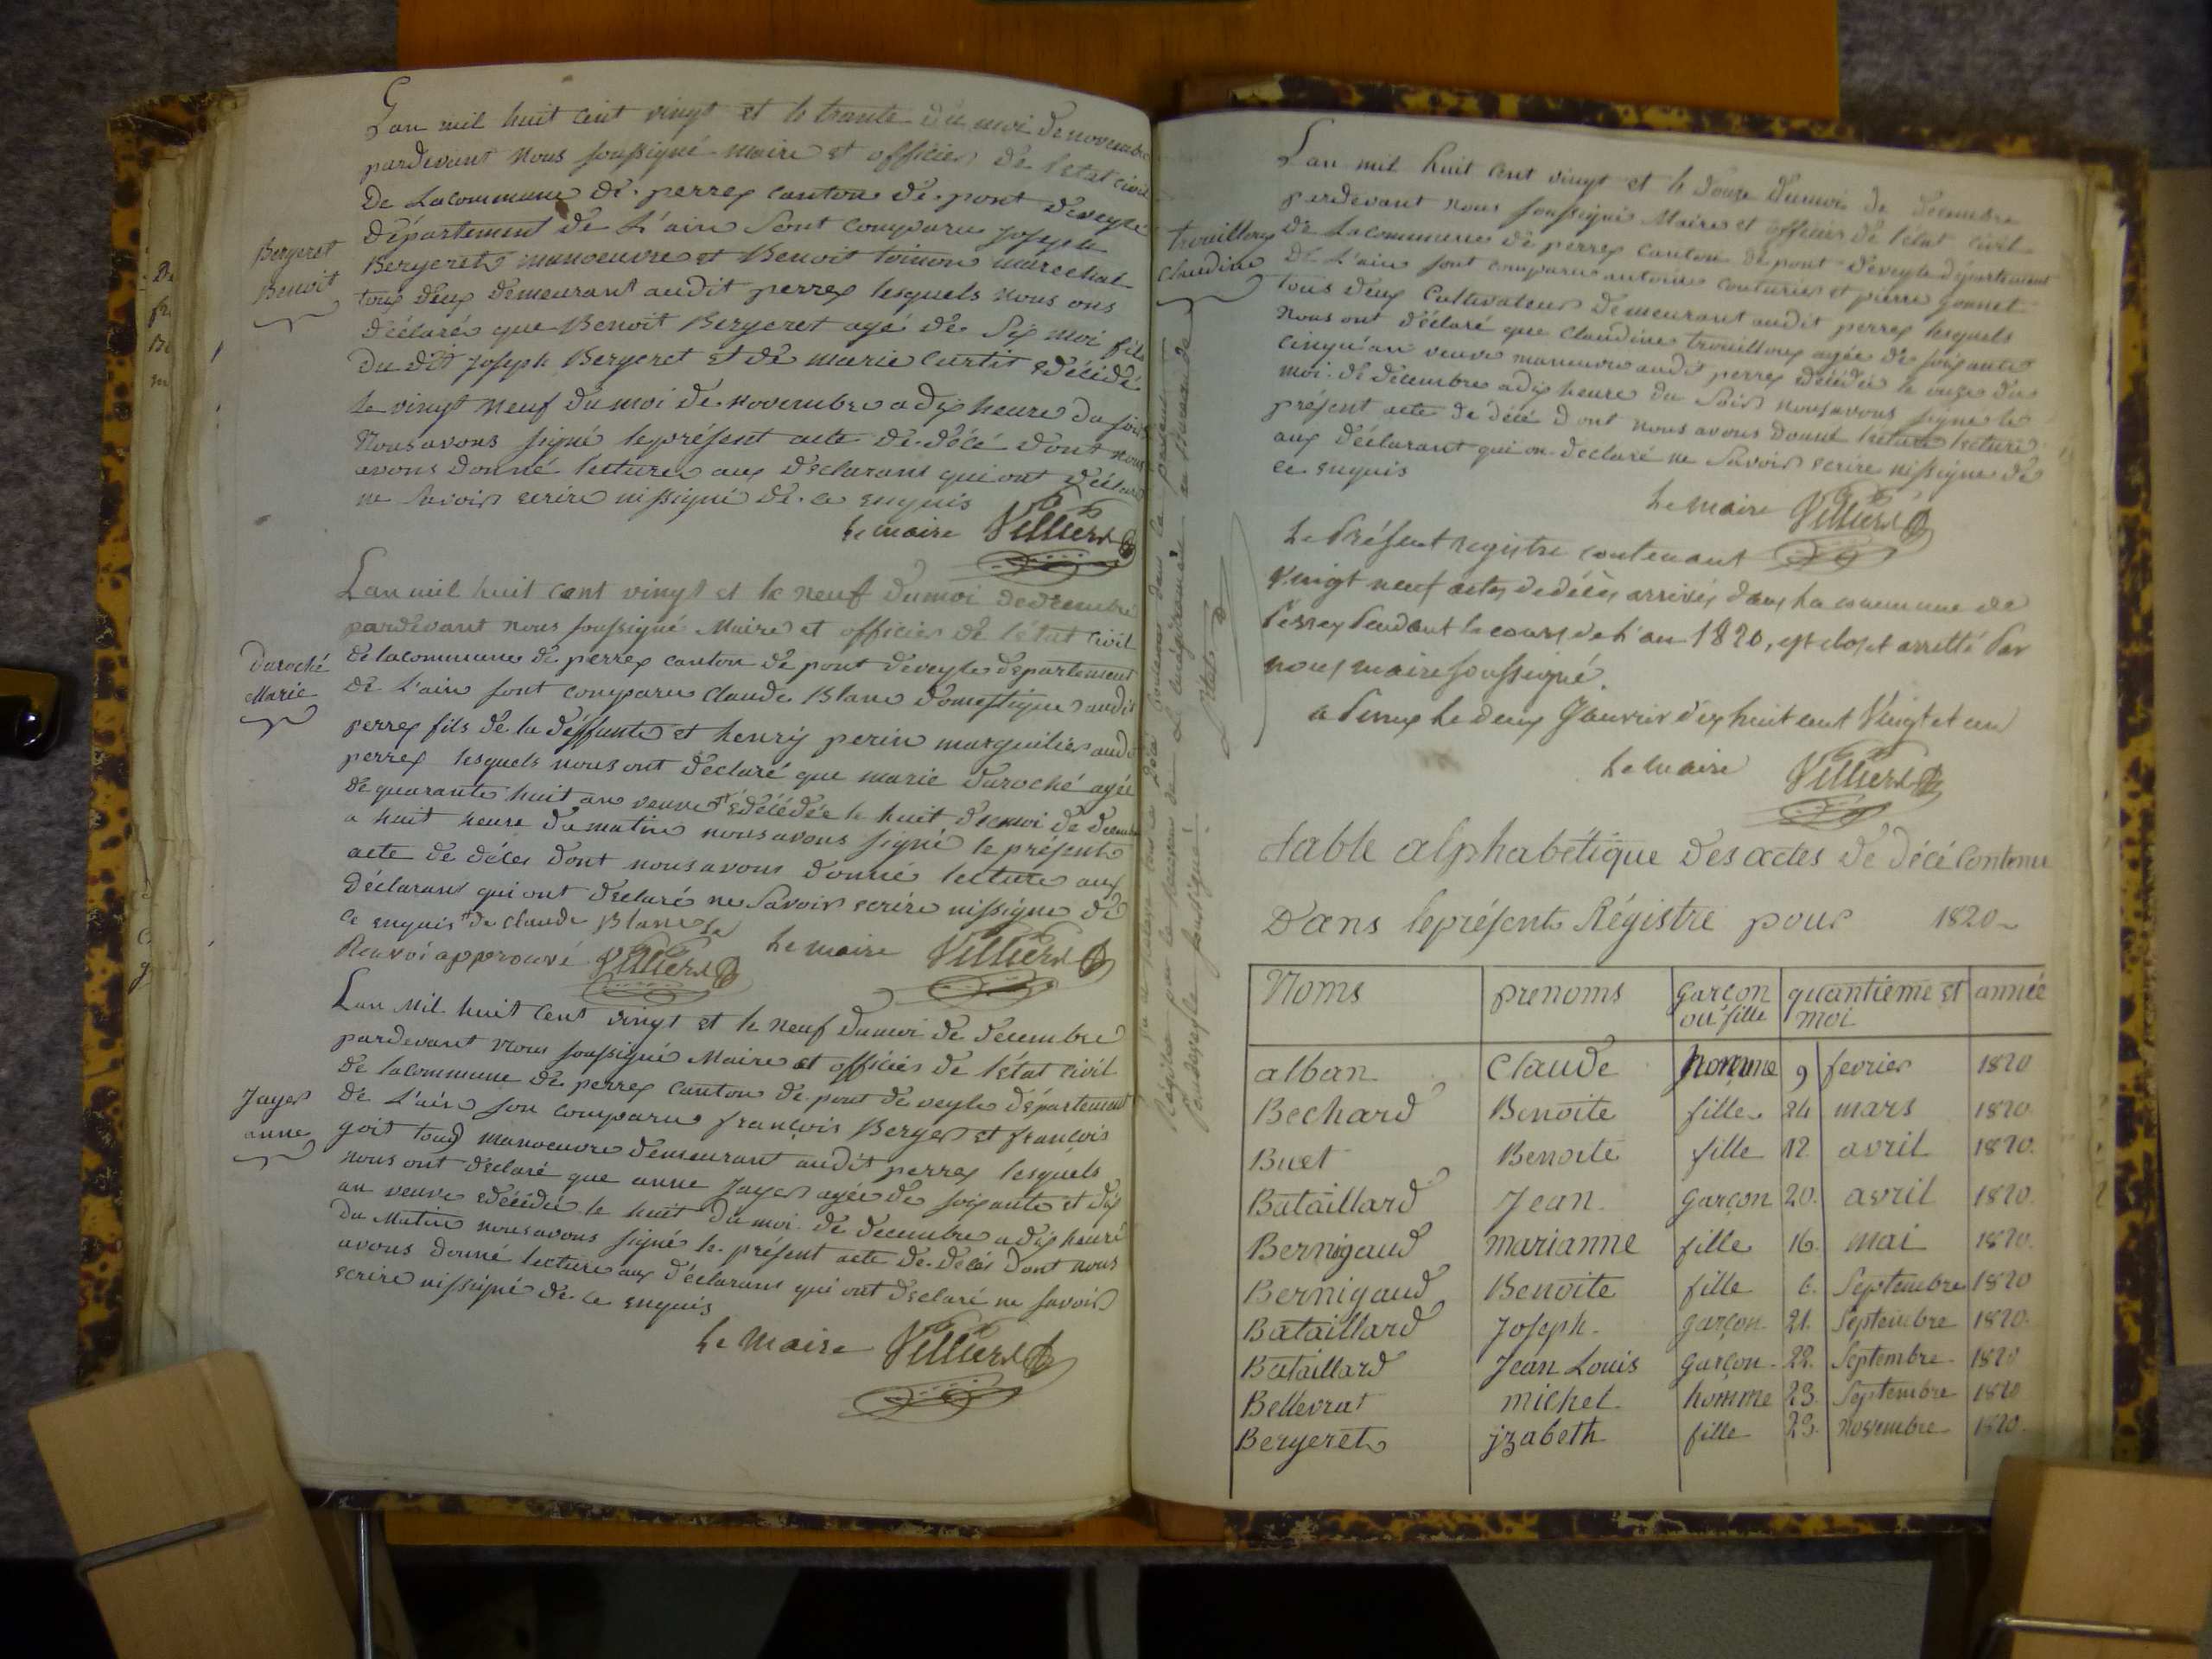 L'an mil huit cent vingt et le trante du moi de novembre
pardevant nous soussigné maire et officier de l'etat civil
De Lacommune de perrex canton de pont deveyle
Département de L'ain sont comparu joseph
Bergeret manoeuvre et Benoit toinon marechal
tous deux demeurant audit perrex lesquels nous ons
déclaré que Benoit Bergeret agé de six moi fils
du dit joseph Bergeret et de marie curtit edécédé
le vingt neuf du moi de novembre a dix heure du soir
Nousavons signé leprésent acte de décé dont nous
avons donné lecture aux declarans qui ont déclaré
ne savoir ecrire nissigné de ce enquis
Le maire Villierd
Bergeret
Benoit
L'an mil huit cent vingt et le neuf dumoi dedecembre
pardevant nous soussigné Maire et officier de l'état civil
delacommune de perrex canton de pont deveyle departement
de L'ain sont comparu Claude Blanc domestique audit
perrex fils de la deffunte et henry perin marguilier audit
perrex lesquels nous ont declaré que marie duroché agée
de quarante huit an veuve edécédée le huit dumoi de decembre
a huit heure du matin nousavons signé le présent
acte de décés dont nousavons donné lecture aux
déclarans qui ont declaré ne savoir ecrire nissigne de
ce enquis de claude Blanc
Renvoi approuvé Villierd Le maire Villierd
Duroché
Marie
L'an Mil huit Cent vingt et le neuf dumoi de decembre
pardevant nous soussigné Maire et officier de l'état civil
de lacommune de perrex canton de pont de veyle département
de L'ain son comparu françois Berger et françois
goit tous manoeuvre demeurant audit perrex lesquels
nous ont declaré que anne Jayer agée de soixante et dix
an veuve edécédée le huit du moi de decembre a dix heure
du Matin nousavons signé le présent acte de décés dont nous
avons donné lecture aux déclarans qui ont declaré ne savoir
ecrire nissigné de ce enquis
Le Maire Villierd
Jayer
anne
L'an mil huit cent vingt et le douze dumoi de decembre
perdevant nous soussigné Maire et officier de l'état civil
De Lacommune de perrex canton de pont deveyle département
De L'ain sont comparu antoine couturier et pierre gonnet
tous deux Cultivateur demeurant audit perrex lesquels
nous ont déclaré que claudine trouilloux agée de soixante
cinqu'an veuve maneuvre audit perrex edécédée le onze du
moi de decembre adix heure du soir nousavons signé le
présent acte de décé dont nous avons donné lecture lecture
aux déclarant qui on declaré ne savoir ecrire nissigne de
ce enquis
Le maire Villierd
trouilloux
claudine
Le Présent registre contenant
vingt neuf actes de décès arrivés dans la commune de
Perrex Pendant le cours de L'an 1820, est clos et arretté Par
nous maire soussigné.
a Perrex Le deux Janvier dix huit cent Vingt et un
Le maire Villierd
table alphabétique des actes de décé Contenu
Dans leprésent Régistre pour 1820
Noms prenoms Garçon ou fille quantième et moi année
alban Claude homme 9 fevrier 1820
Bechard Benoite fille 24 mars 1820
Buet Benoite fille 12 avril 1820
Bataillard Jean garçon 20 avril 1820
Bernigaud marianne fille 16 mai 1820
Bernigaud Benoite fille 6 Septembre 1820
Bataillard Joseph garçon 21 Septembre 1820
Bataillard Jean Louis garçon 22 Septembre 1820
Bellevrat michel homme 23 Septembre 1820
Bergeret jzabeth fille 23 novembre 1820